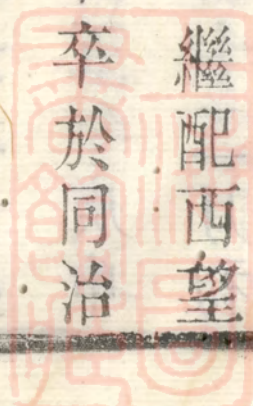 繼配西望
卒於同治